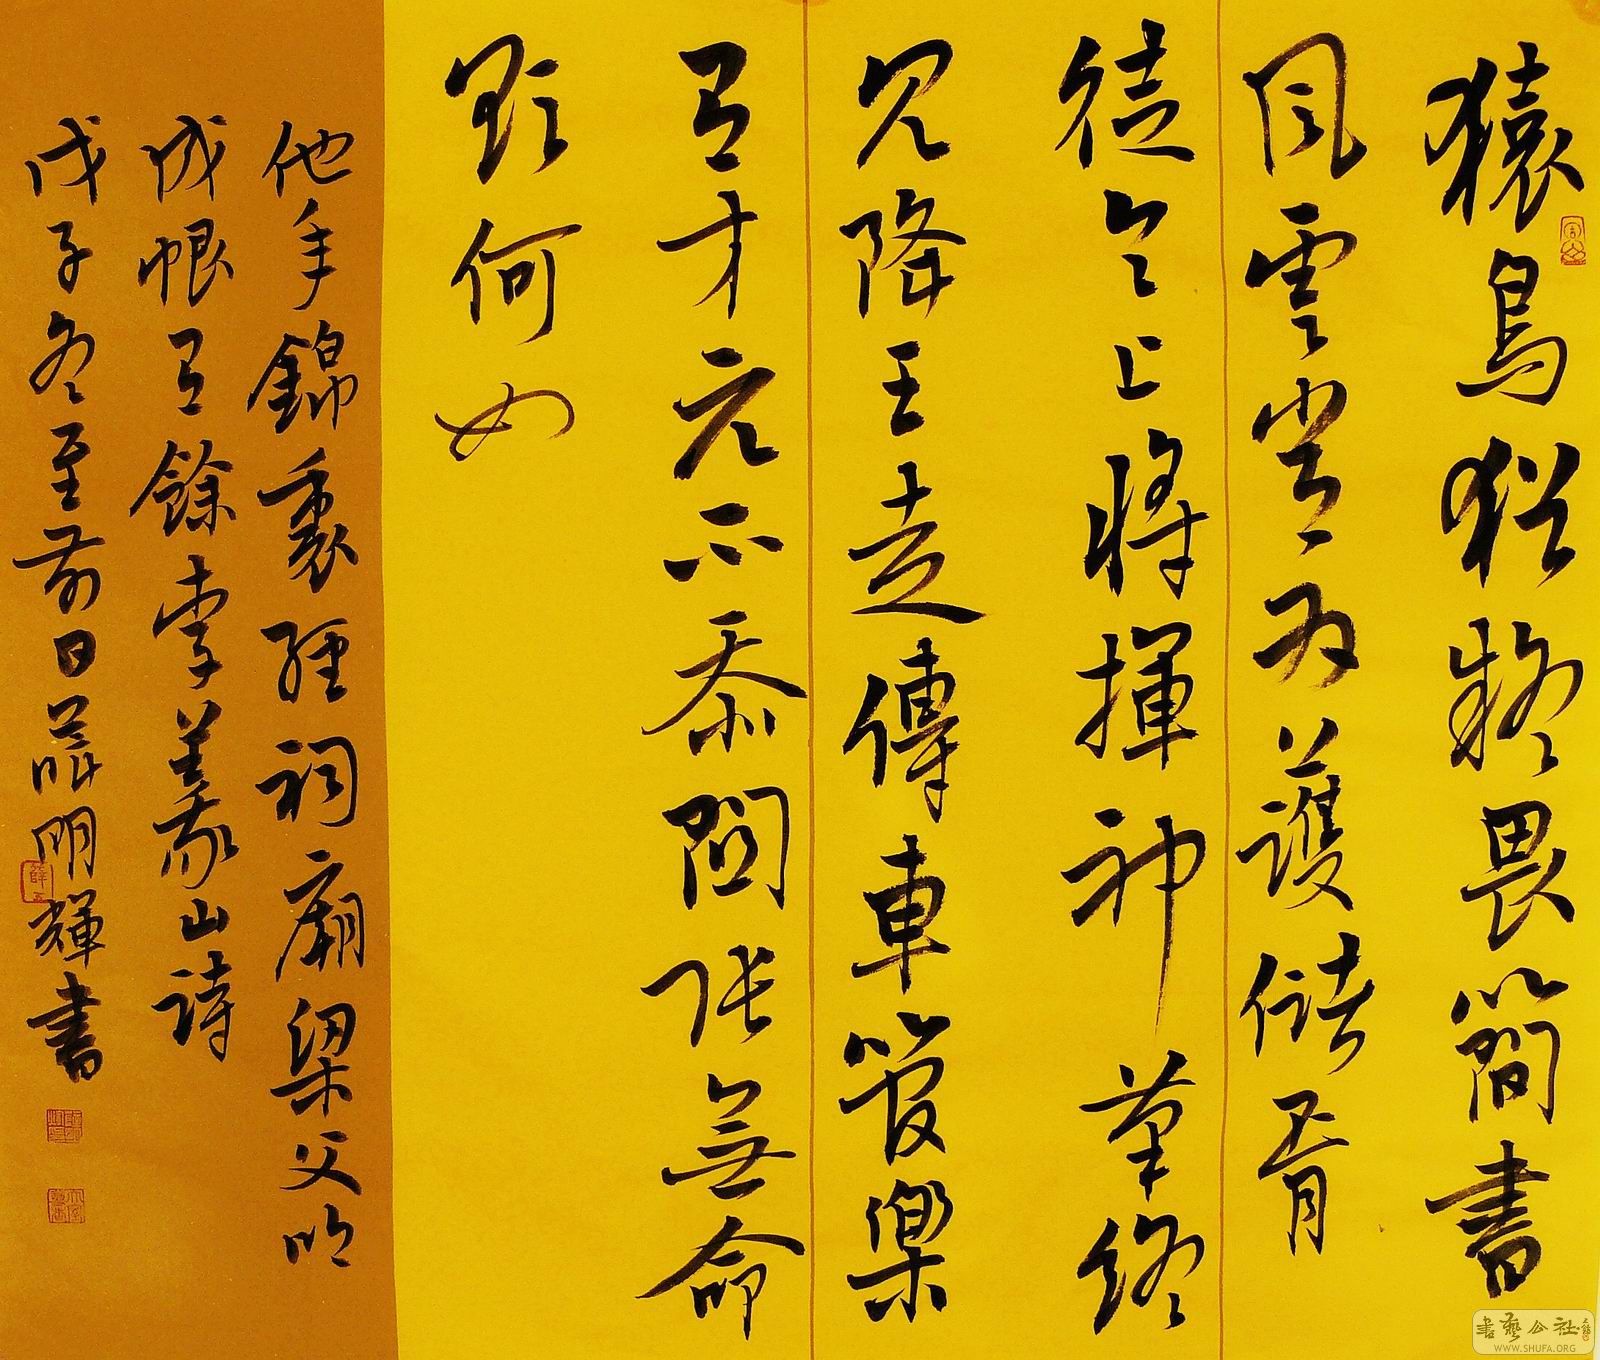 猿鳥猶疑畏簡書
風雲常为護儲胥
徒令上將揮神筆終
見降王走傳車管樂
有才元不忝關張無命
欲何如
他年錦裏經祠廟梁父吟
成恨有餘李義山詩
戊子冬至前日薛明輝書
書藝公社
WWW.SHUFA.ORG